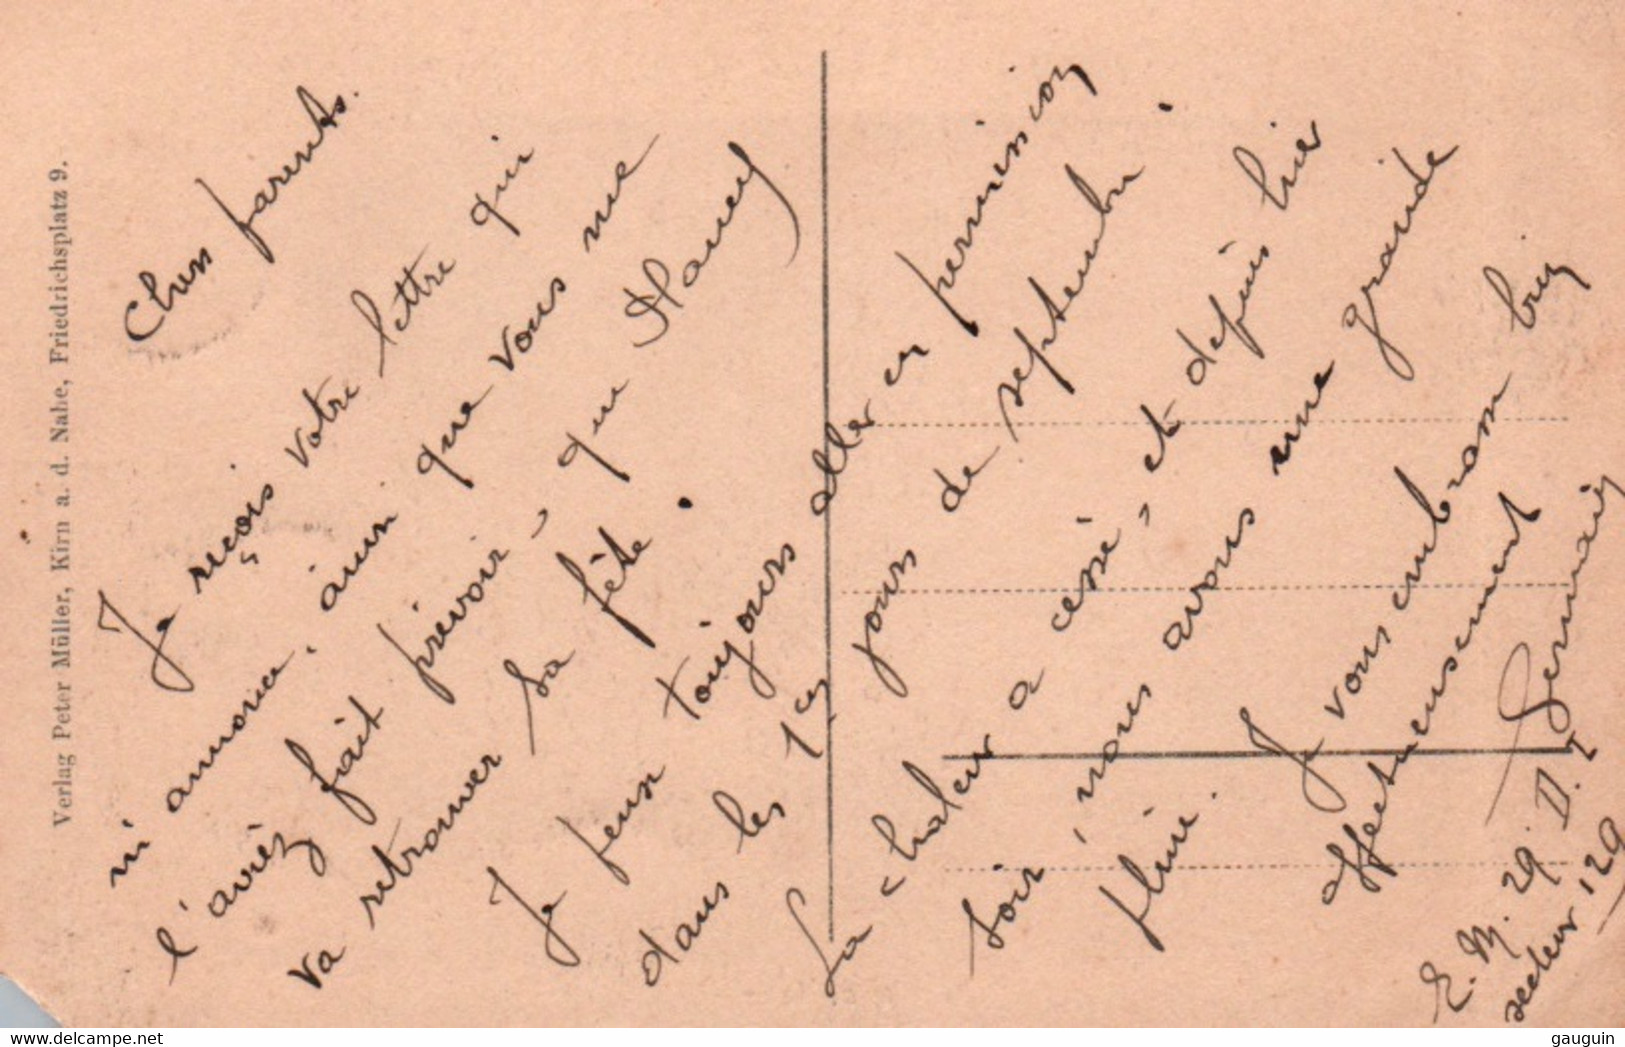 Chers parents.
Je reçois votre lettre qui
m'annonce, ainsi que vous me
l'aviez fait prévoir, que Nancy
va retrouver sa fête.
Je pense toujours aller en permission
dans les 1ers jours de septembre.
La chaleur a cessé, et depuis hier
soir nous avons une grande
pluie. Je vous embrasse bien
affectueusement
Germain
E. M. 29. D. I
secteur 129
Verlag Peter Müller, Kirn a. d. Nahe, Friedrichsplatz 9.
gauguin